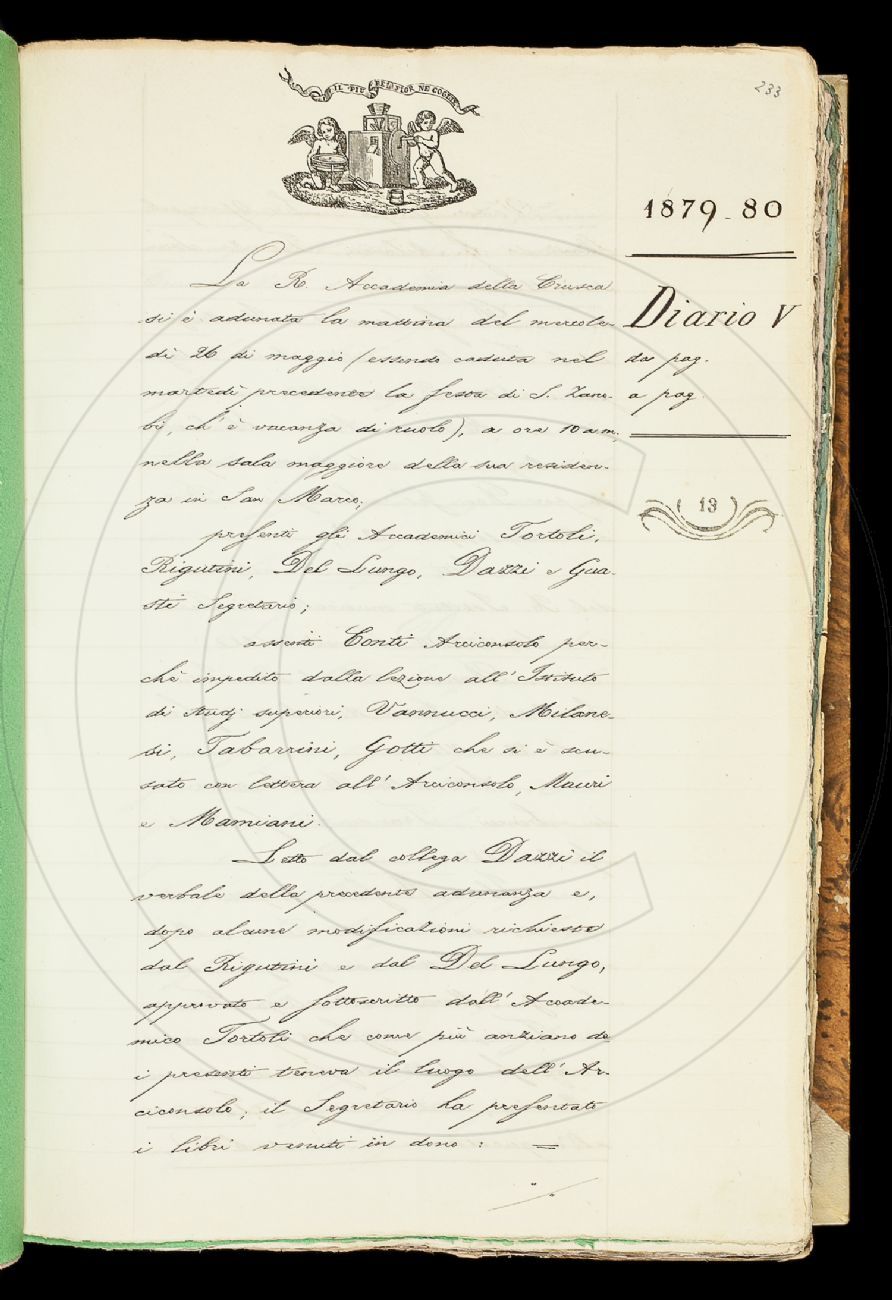 IL PIÙ BEL FIOR NE COGLIE
233
1879-80
Diario V
da pag.
a pag.
13
La R. Accademia della Crusca
si è adunata la mattina del mercole-
dì 26 di maggio (essendo caduta nel
martedì precedente la festa di S. Zano-
bi, ch'è vacanza di ruolo), a ore 10 a.m.,
nella sala maggiore della sua residen-
za in San Marco;
presenti gli Accademici Tortoli,
Rigutini, Del Lungo, Dazzi e Gua-
sti Segretario;
assenti Conti Arciconsolo per-
chè impedito dalla lezione all'Istituto
di Studj superiori, Vannucci, Milane-
si, Tabarrini, Gotti che si è scu-
sato con lettera all'Arciconsolo, Mauri
e Mamiani.
Letto dal collega Dazzi il
verbale della precedente adunanza e,
dopo alcune modificazioni richieste
dal Rigutini e dal Del Lungo,
approvato e sottoscritto dall'Accade-
mico Tortoli che come più anziano de
i presenti teneva il luogo dell'Ar-
ciconsolo; il Segretario ha presentato
i libri venuti in dono: =